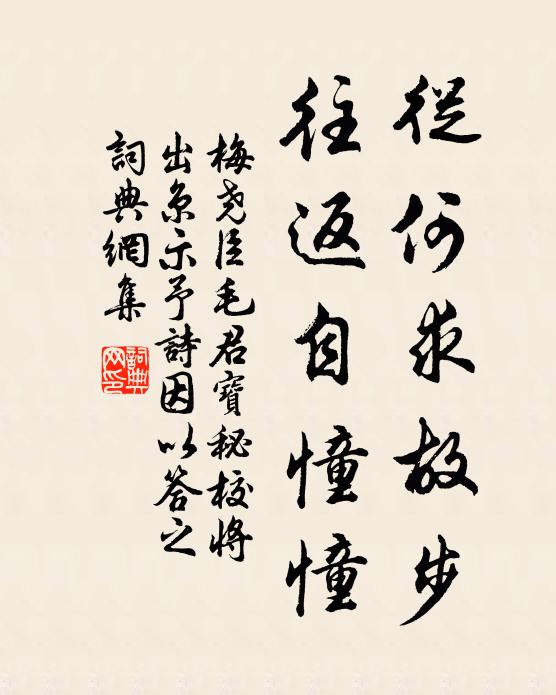 從何求故步
往返自憧憧
梅尧臣毛君寶秘校將
出京示予詩因以答之
詞典網集
詞典网印